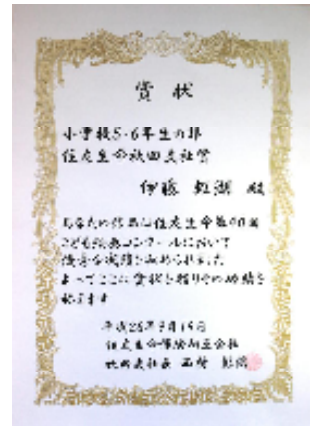 賞状
小学校5・6年生の部
住友生命秋田支社賞
伊藤 殿
あなたの作品は住友生命第40回
こども絵画コンクールにおいて
優秀な成績を収められました
よってここに賞状を贈りその功績を
称えます
平成28年9月16日
住友生命保険相互会社
秋田支社長 西村